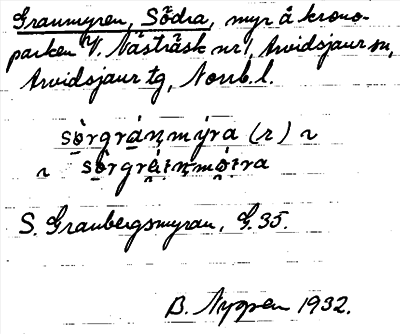 Granmyren, Södra, myr å krono-
parken V. Nåsträsk nr 1, Arvidsjaur sn,
Arvidsjaur tg, Norrb. l.
sö̀rgrán̦mýra (r) ~
~ sö̀rgráɪn̦móɪra
S. Granbergsmyran, G. 35.
B. Nyppen 1932.